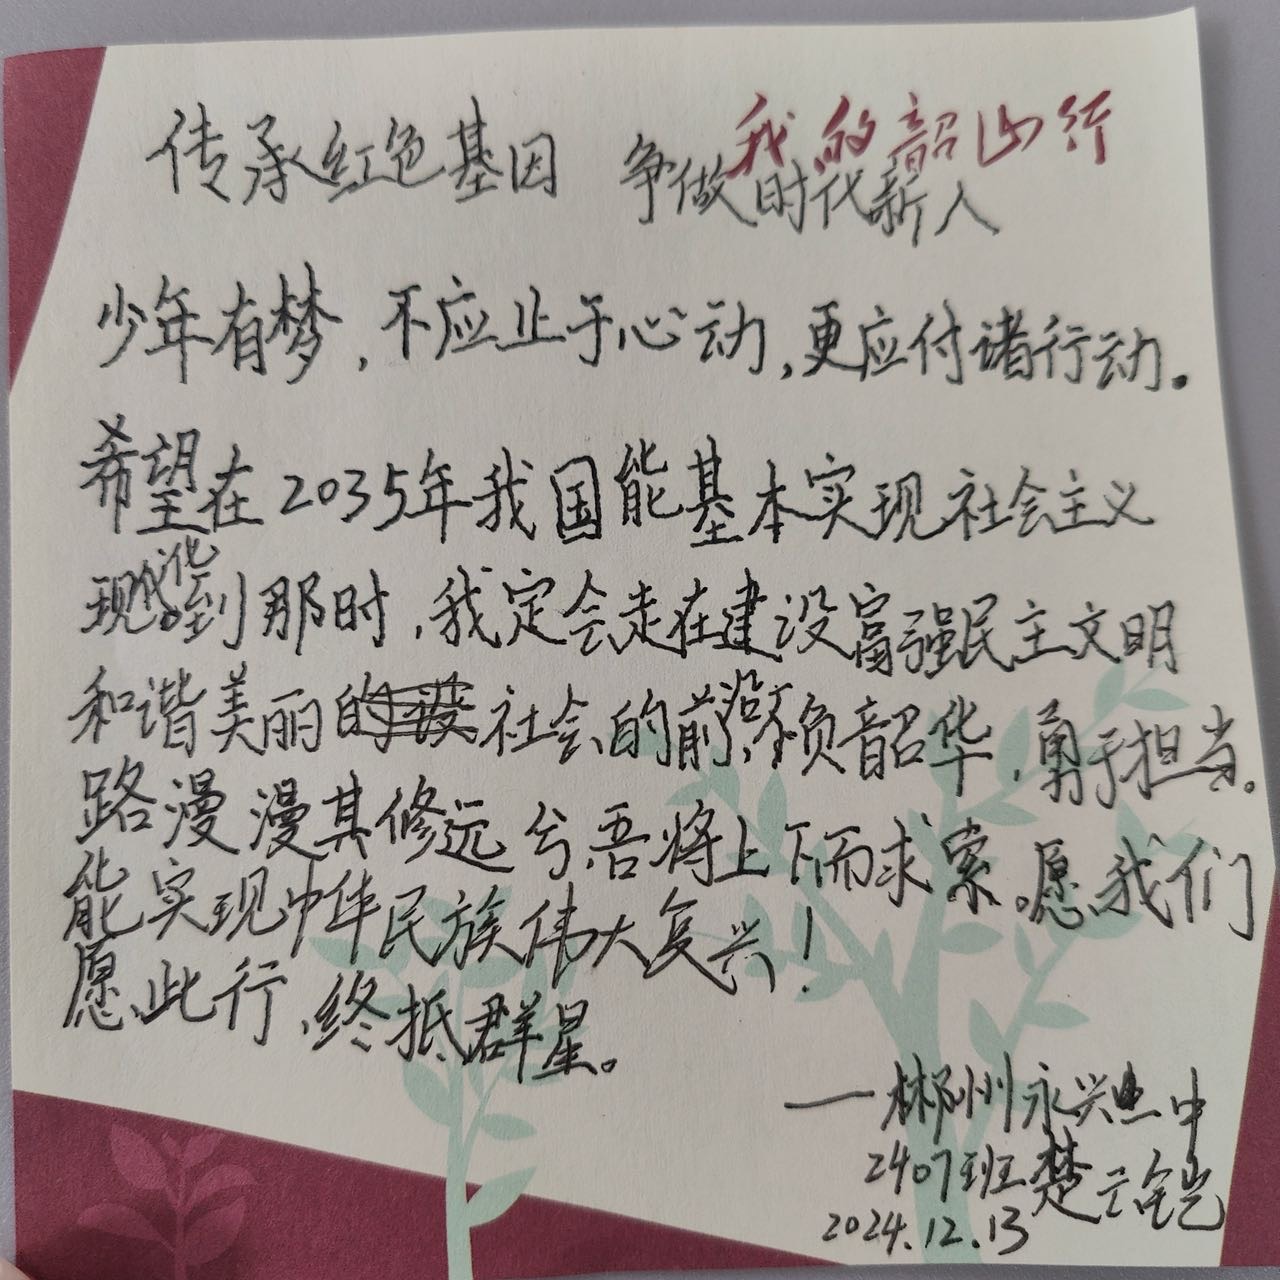 我的韶山行
传承红色基因 争做时代新人
少年有梦,不应止于心动,更应付诸行动。
希望在2035年我国能基本实现社会主义
现代化。到那时,我定会走在建设富强民主文明
和谐美丽的社会的前沿,不负韶华,勇于担当。
路漫漫其修远兮吾将上下而求索。愿我们
能实现中华民族伟大复兴!
愿此行,终抵群星。
——郴州永兴 中
2407班楚云
2024.12.13